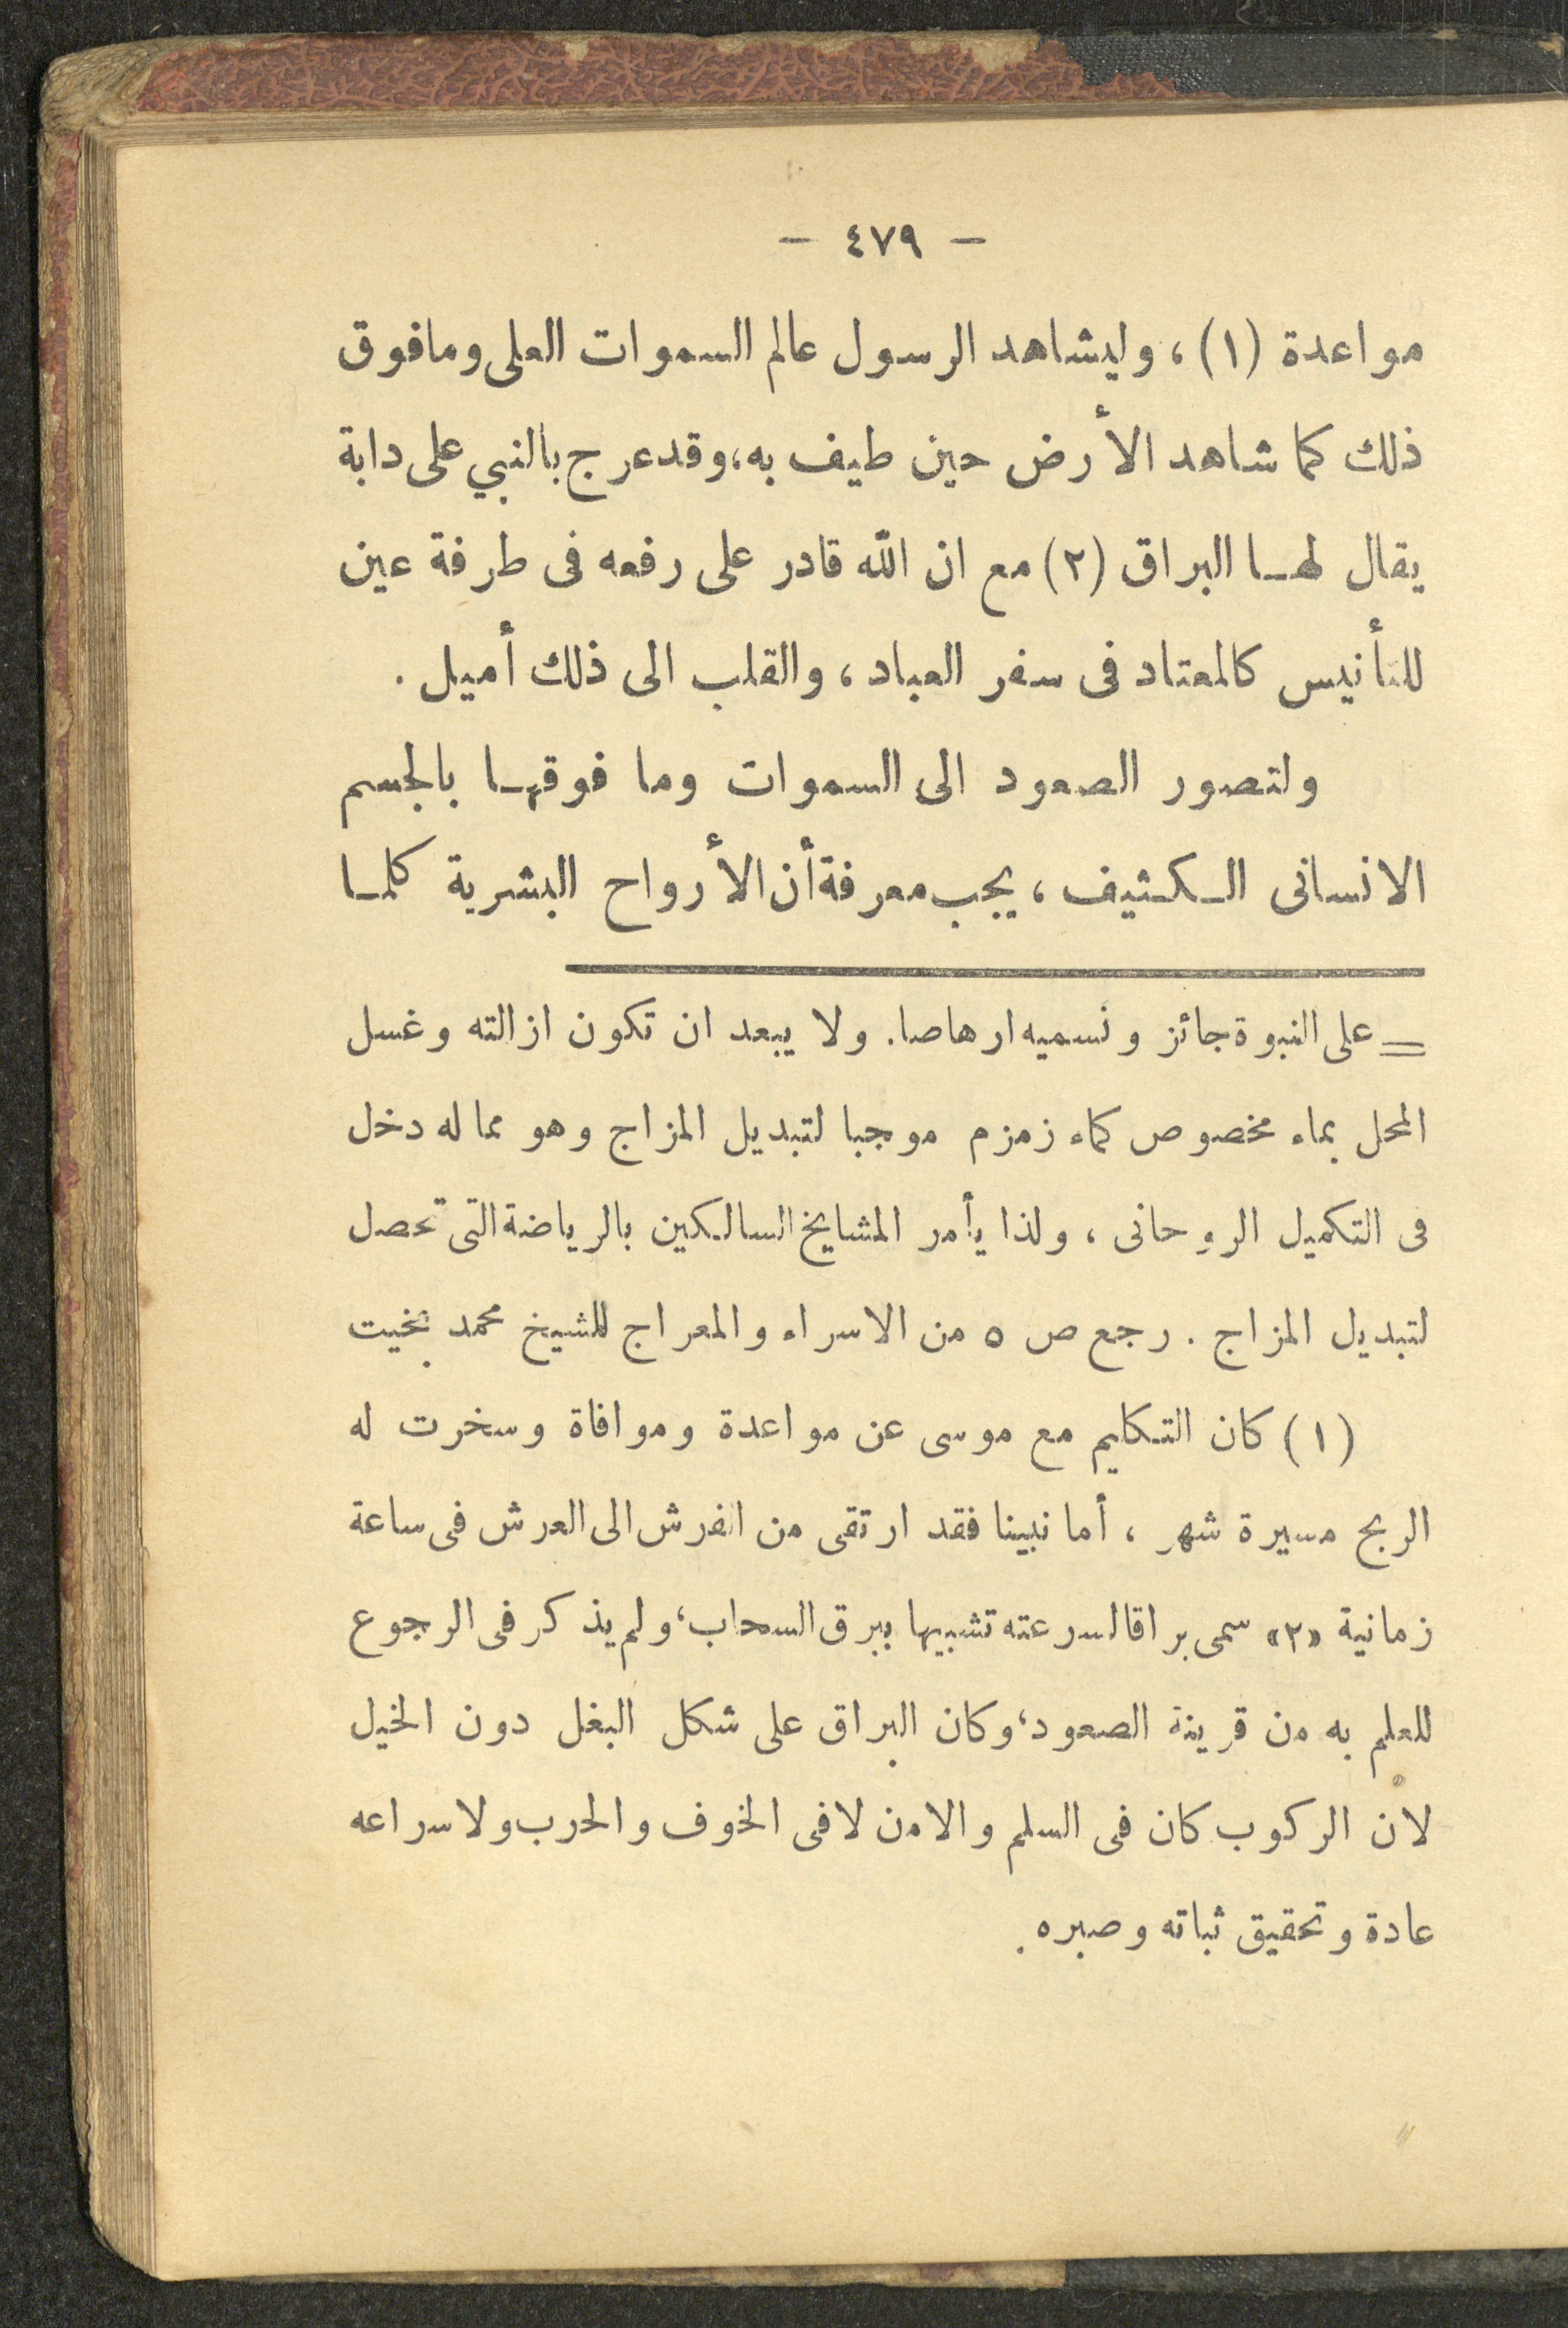 — ٤٧٩ —
مواعدة (١)، وليشاهد الرسول عالم السموات العلى ومافوق
ذلك كما شاهد الأرض حين طيف به، وقد عرج بالنبي على دابة
يقال لهـا البراق (٢) مع ان الله قادر على رفعه فى طرفة عين
للتأنيس كالمعتاد فى سفر العباد، والقلب الى ذلك أميل.
ولتصور الصعود الى السموات وما فوقهـا بالجسم
الانسانى الـكـثيف، يجب معرفة أن الأرواح البشرية كلمـا
= على النبوة جائز ونسميه ارهاصا. ولا يبعد ان تكون ازالته وغسل
المحل بماء مخصوص كماء زمزم موجبا لتبديل المزاج وهو مما له دخل
فى التكميل الروحانى، ولذا يأمر المشايخ السالـكين بالرياضة التى تحصل
لتبديل المزاج. رجع ص ٥ من الاسراء والمعراج للشيخ محمد بخيت
(١) كان التـكليم مع موسى عن مواعدة وموافاة وسخرت له
الريح مسيرة شهر، أما نبينا فقد ارتقى من الفرش الى العرش فى ساعة
زمانية «٢» سمى براقا لسرعته تشبيها ببرق السحاب، ولم يذكر فى الرجوع
للعلم به من قرينة الصعود، وكان البراق على شكل البغل دون الخيل
لان الركوب كان فى السلم والامن لا فى الخوف والحرب ولاسراعه
عادة وتحقيق ثباته وصبره.